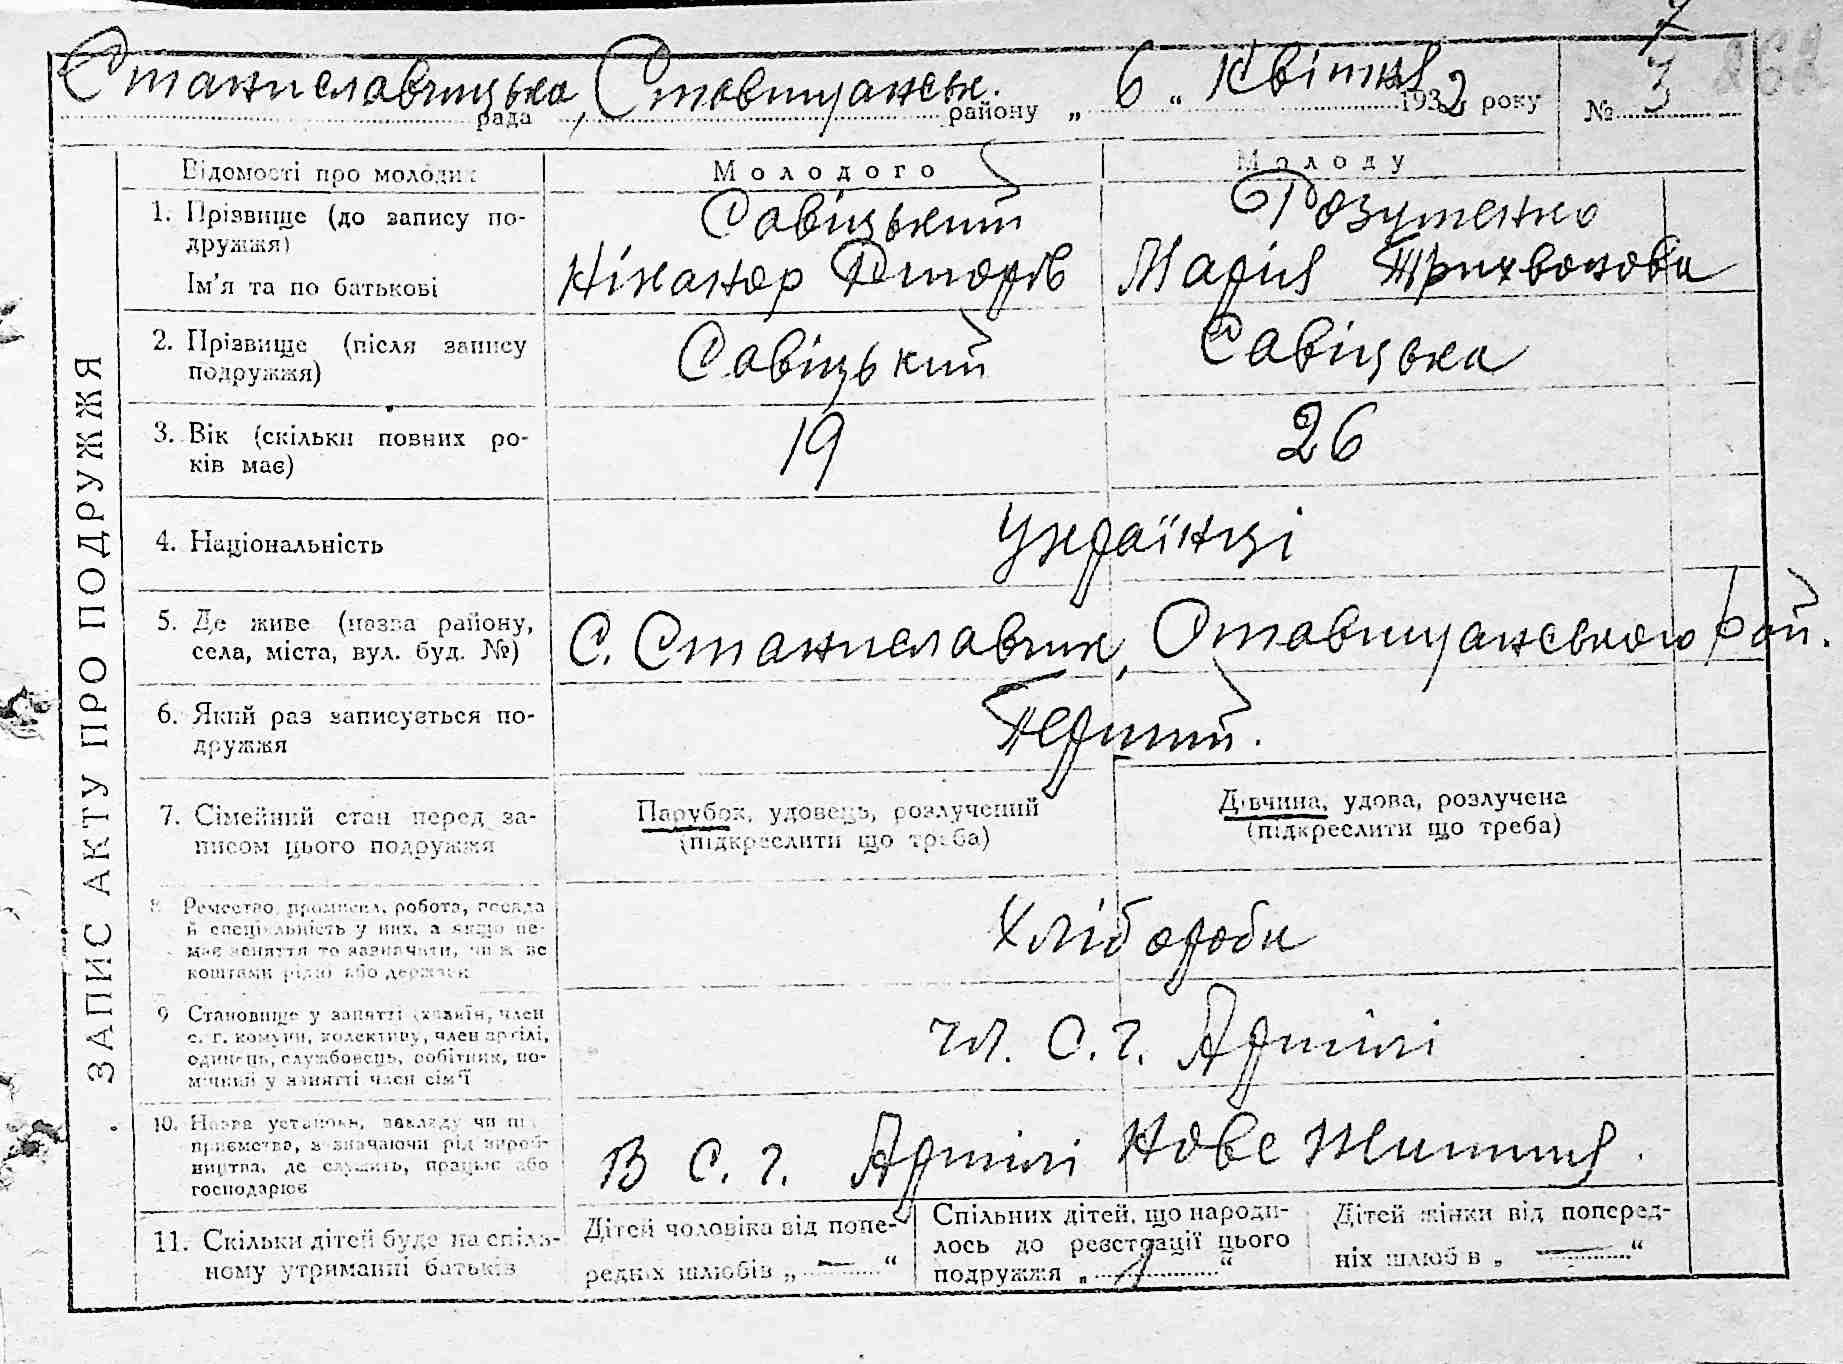 7
Станиславчицька рада, Ставищанськ. району „ 6 „ Квітня 1932 року № 3
262
ЗАПИС АКТУ ПРО ПОДРУЖЖЯ
Відомості про молодих
Молодого
Молоду
1. Прізвище (до запису по-
дружжя)
Савіцький
Розутенко
Ім'я та по батькові
Ніканор
Марія
2. Прізвище (після запису
подружжя)
Савіцький
Савіцька
3. Вік (скільки повних ро-
ків має)
19
26
4. Національність
Українці
5. Де живе (назва району,
села, міста, вул. буд. №)
С. Станиславчик, Ставищанського рай.
6. Який раз записується по-
дружжя
Перший.
7. Сімейний стан перед за-
писом цього подружжя
Парубок, удовець, розлучений
(підкреслити що треба)
Дівчина, удова, розлучена
(підкреслити що треба)
8. Ремество, промисел, робота, посада
й спеціяльність у них, а якщо не-
має заняття то зазначити, чи ж ве
коштами рідні або держави
Хлібороби
9 Становище у занятті (хазяїн, член
с. г. комуни, колективу, член артілі,
одинець, службовець, робітник, по-
мічний у занятті член сім'ї
Чл. С. г. Артілі
10. Назва установи, закладу чи під-
приємства, зазначаючи рід вироб-
ництва, де служить, працює або
господарює
В С. г. Артілі Нове Життя.
11. Скільки дітей буде на спіль-
ному утриманні батьків
Дітей чоловіка від попе-
редніх шлюбів „ — “
Спільних дітей, що народи-
лось до реєстрації цього
подружжя „ 1 “
Дітей жінки від поперед-
ніх шлюбів „ — “